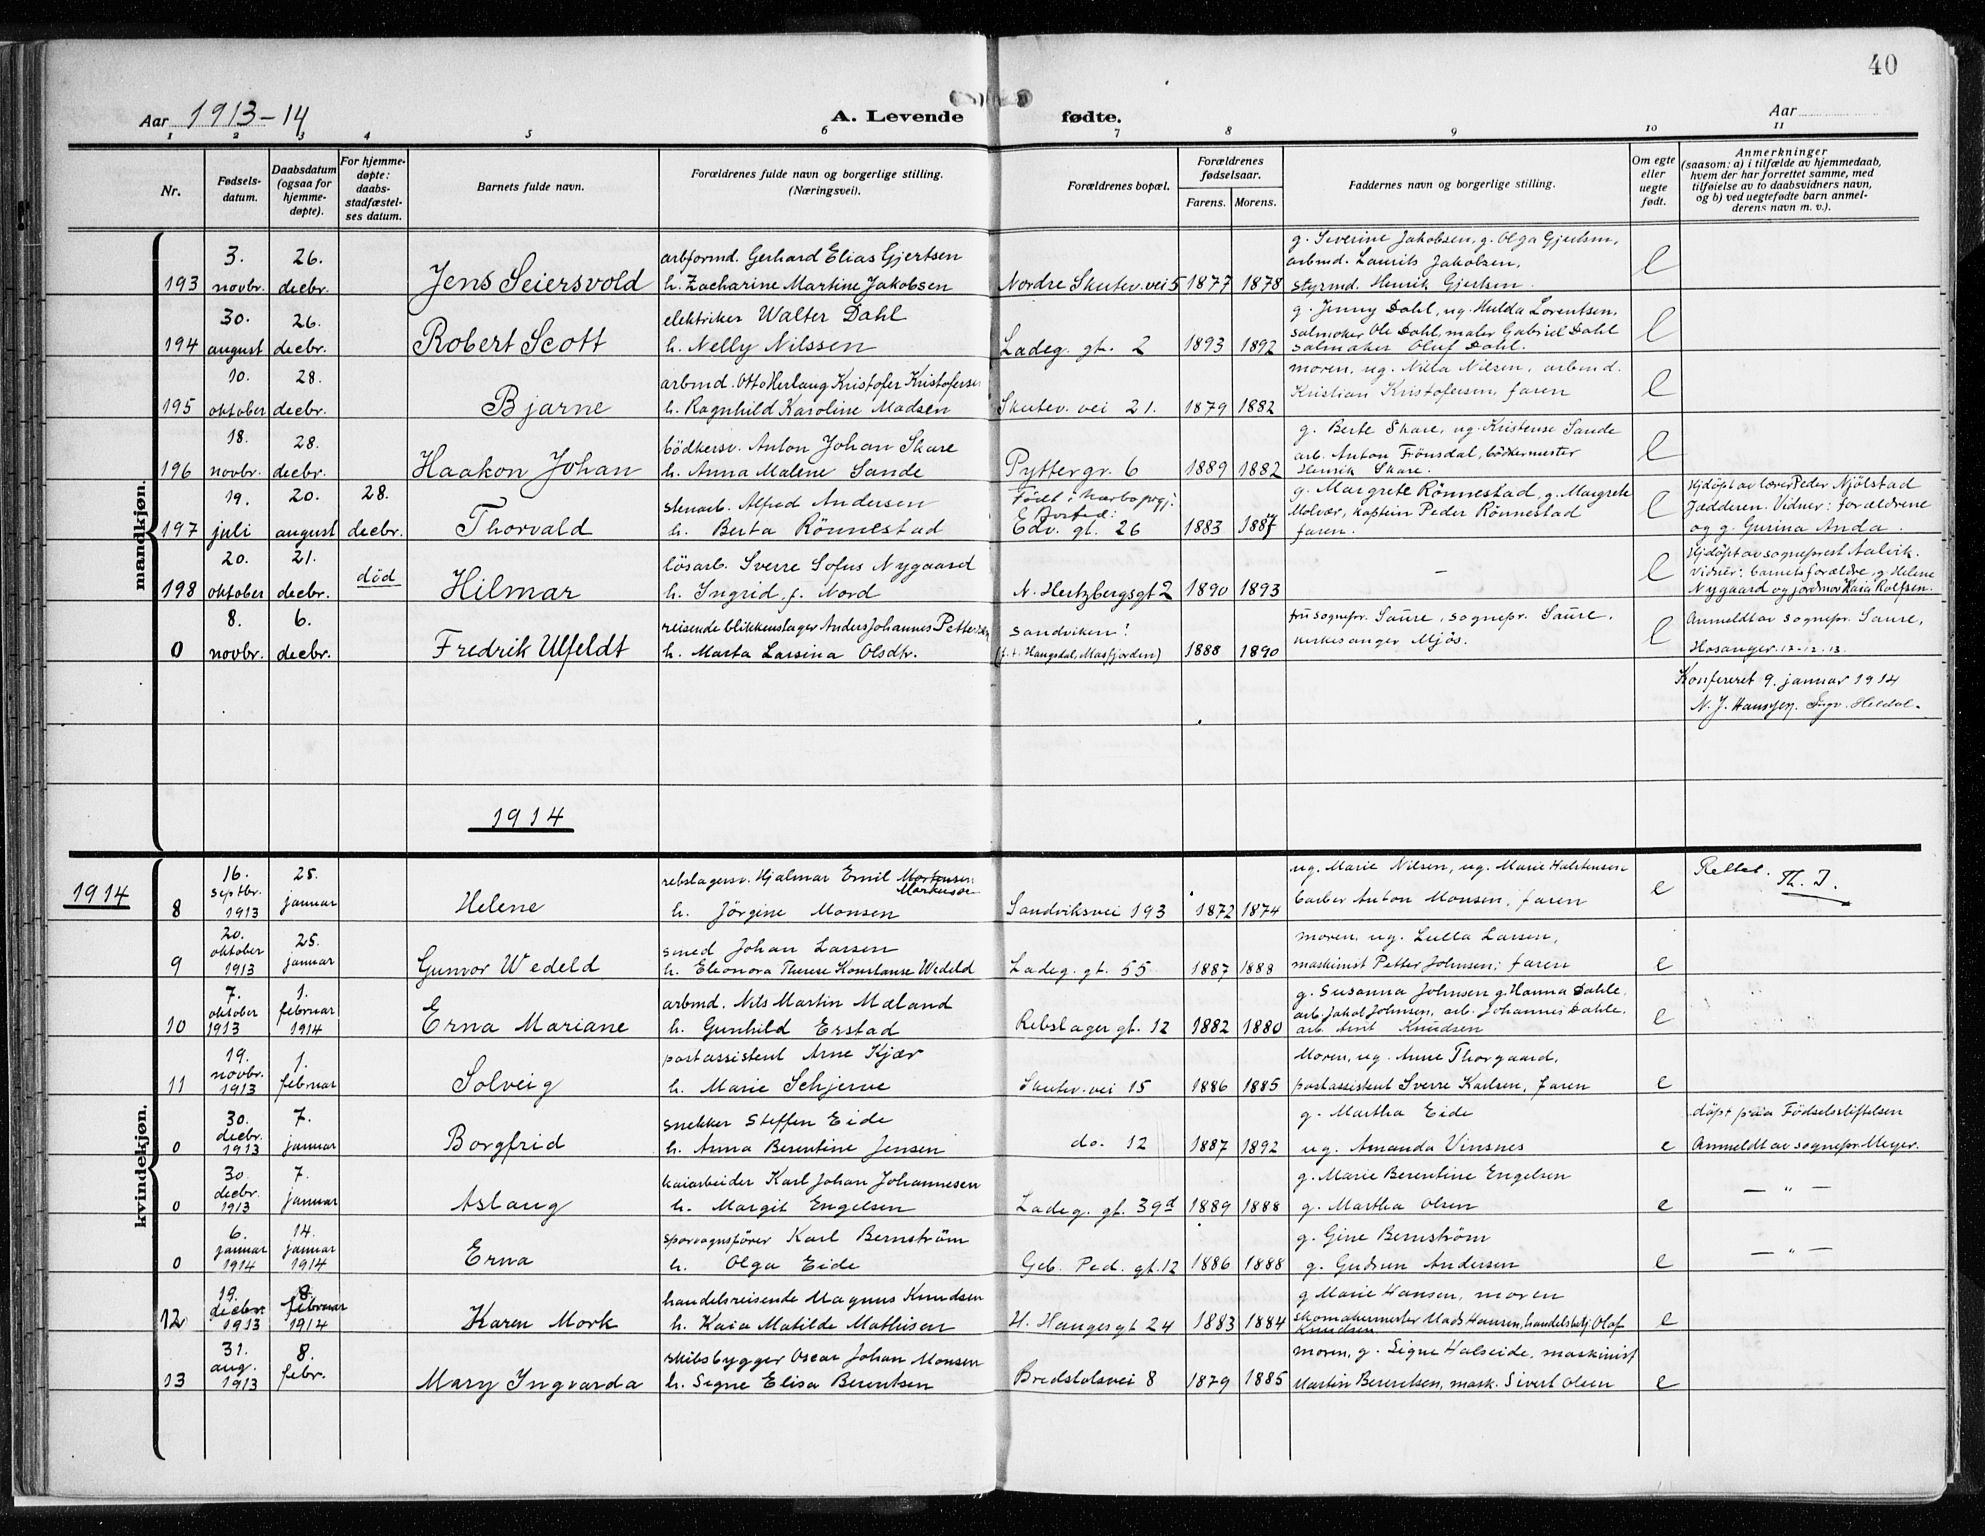 40
Aar 1913-14
A. Levende fødte.
Aar
1 2 3 4 5 6 7 8 9 10 11
Nr.
Fødsels-
datum.
Daabsdatum
(ogsaa for
hjemme-
døpte).
For hjemme-
døpte:
daabs-
stadfæstel-
ses datum.
Barnets fulde navn.
Forældrenes fulde navn og borgerlige stilling.
(Næringsvei).
Forældrenes bopæl.
Forældrenes
fødselsaar.
Farens. Morens.
Faddernes navn og borgerlige stilling.
Om egte
eller
uegte
født.
Anmerkninger
(saasom: a) i tilfælde av hjemmedaab,
hvem der har forrettet samme, med
tilføielse av to daabsvidners navn,
og b) ved uegtefødte barn anmel-
derens navn m. v.).
mandkjøn.
193
3.
novbr.
26.
decbr.
Jens Seiersvold
arbformd. Gerhard Elias Gjertsen
h. Zacharine Martine Jakobsen
Nordre Skutev. vei 5
1877 1878
g. Severine Jakobsen, g. Olga Gjertsen,
arbmd. Laurits Jakobsen,
styrmd. Henrik Gjertsen.
e
194
30.
august
26.
decbr.
Robert Scott
elektriker Walter Dahl
h. Nelly Nilssen
Ladeg. gt. 2
1893 1892
g. Jenny Dahl, ug. Hulda Lorentsen,
salmaker Ole Dahl, maler Gabriel Dahl
salmaker Oluf Dahl.
e
195
10.
oktober
28.
decbr.
Bjarne
arbmd. Otto Herlaug Kristofer Kristofersen
h. Ragnhild Karoline Madsen
Skutev. vei 21.
1879 1882
moren, ug. Nilla Nilsen, arbmd.
Kristian Kristofersen, faren
e
196
18.
novbr.
28.
decbr.
Haakon Johan
bödkersv. Anton Johan Skare
h. Anna Malene Sande
Pyttergr. 6
1889 1882
g. Berte Skare, ug. Kristense Sande
arb. Anton Fönsdal, bödkermester
Henrik Skare.
e
197
19.
juli
20.
august
28.
decbr.
Thorvald
stenarb. Alfred Andersen
h. Berta Rönnestad
Født i Nærbø pgj.
Edv. gt. 26
1883 1887
g. Margrete Rönnestad, g. Margrete
Molvær, kaptein Peder Rönnestad
faren.
e
Hjdöpt av lærer Peder Njölstad
Jædderen. Vidner: forældrene
og g. Gurina Anda.
198
20.
oktober
21.
decbr.
død
Hilmar
lösarb. Sverre Sofus Nygaard
h. Ingrid f. Nord
N. Hertzbergsgt 2
1890 1893
–
e
Hjdöpt av sogneprest Aalvik.
Vidner: barnets forældre, g. Helene
Nygaard og jordmor Kaia Rolfsen.
0
8.
novbr.
6.
decbr.
Fredrik Ulfeldt
reisende blikkenslager Anders Johannes Pettersen
h. Marta Larsina Olsdtr.
Sandviken!
(f. t. Haugsdal, Masfjorden)
1888 1890
fru sognepr. Saure, sognepr. Saure,
kirkesanger Mjös.
e
Anmeldt av sognepr. Saure,
Hosanger. 12-12-13.
Konfereret 9. januar 1914
N. J. Hanssen. Ingv. Heldal.
1914
kvindekjøn.
1914
8
16.
septbr.
1913
25.
januar
Helene
rebslagersv. Hjalmar Emil Mortensen
Markusson
h. Jörgine Monsen
Sandviksvei 193
1872 1874
ug. Marie Nilsen, ug. Marie Halstensen
barber Anton Monsen, faren
e
Rettet. Th. I.
9
20.
oktober
1913
25.
januar
Gunvor Wedeld
smed Johan Larsen
h. Eleonora Therese Konstanse Wedeld
Ladeg. gt. 55
1887 1888
moren, ug. Lulla Larsen,
maskinist Petter Johnsen, faren
e
10
7.
oktober
1913
1.
februar
1914
Erna Mariane
arbmd. Nils Martin Mæland
h. Gunhild Erstad
Rebslager gt. 12
1882 1880
g. Susanna Johnsen g. Hanna Dahle,
arb. Jakob Johnsen, arb. Johannes Dahle,
arb. Arnt Knudsen
e
11
19.
novbr.
1913
1.
februar
Solveig
postassistent Arne Kjær
h. Marie Schjerve
Skutev. vei 15
1886 1885
Moren, ug. Anne Thorgaard,
postassistent Sverre Karlsen, faren
e
0
30.
decbr.
1913
7.
januar
Borgfrid
snekker Steffen Eide
h. Anna Berentine Jensen
do. 12
1887 1892
g. Martha Eide
ug. Amanda Vinsnes
e
döpt paa Födselsstiftelsen
Anmeldt av sognepr. Meyer.
0
30.
decbr.
1913
7.
januar
Aslaug
kaiarbeider Karl Johan Johannesen
h. Margit Engelsen
Ladeg. gt. 39d
1889 1888
g. Marie Berentine Engelsen
g. Martha Olsen
e
— " —
0
6.
januar
1914
14.
januar
1914
Erna
sporvognsfører Karl Bernström
h. Olga Eide
Geb. Ped. gt. 12
1886 1888
g. Gine Bernström
g. Gudrun Andersen
e
— " —
12
19.
decbr.
1913
8.
februar
1914
Karen Mork
handelsreisende Magnus Knudsen
h. Kaia Matilde Mathisen
H. Haugesgt 24
1883 1884
g Marie Hansen, moren
skomakermester Mads Hansen, handelsbtj. Olaf
Knudsen
e
13
31.
aug.
1913
8.
febr.
Mary Ingvarda
skibsbygger Oscar Johan Monsen
h. Signe Elisa Berentsen
Bredstølsvei 8
1879 1885
moren, g. Signe Halseide, maskinist
Martin Berentsen, mask. Sivert Olsen
e